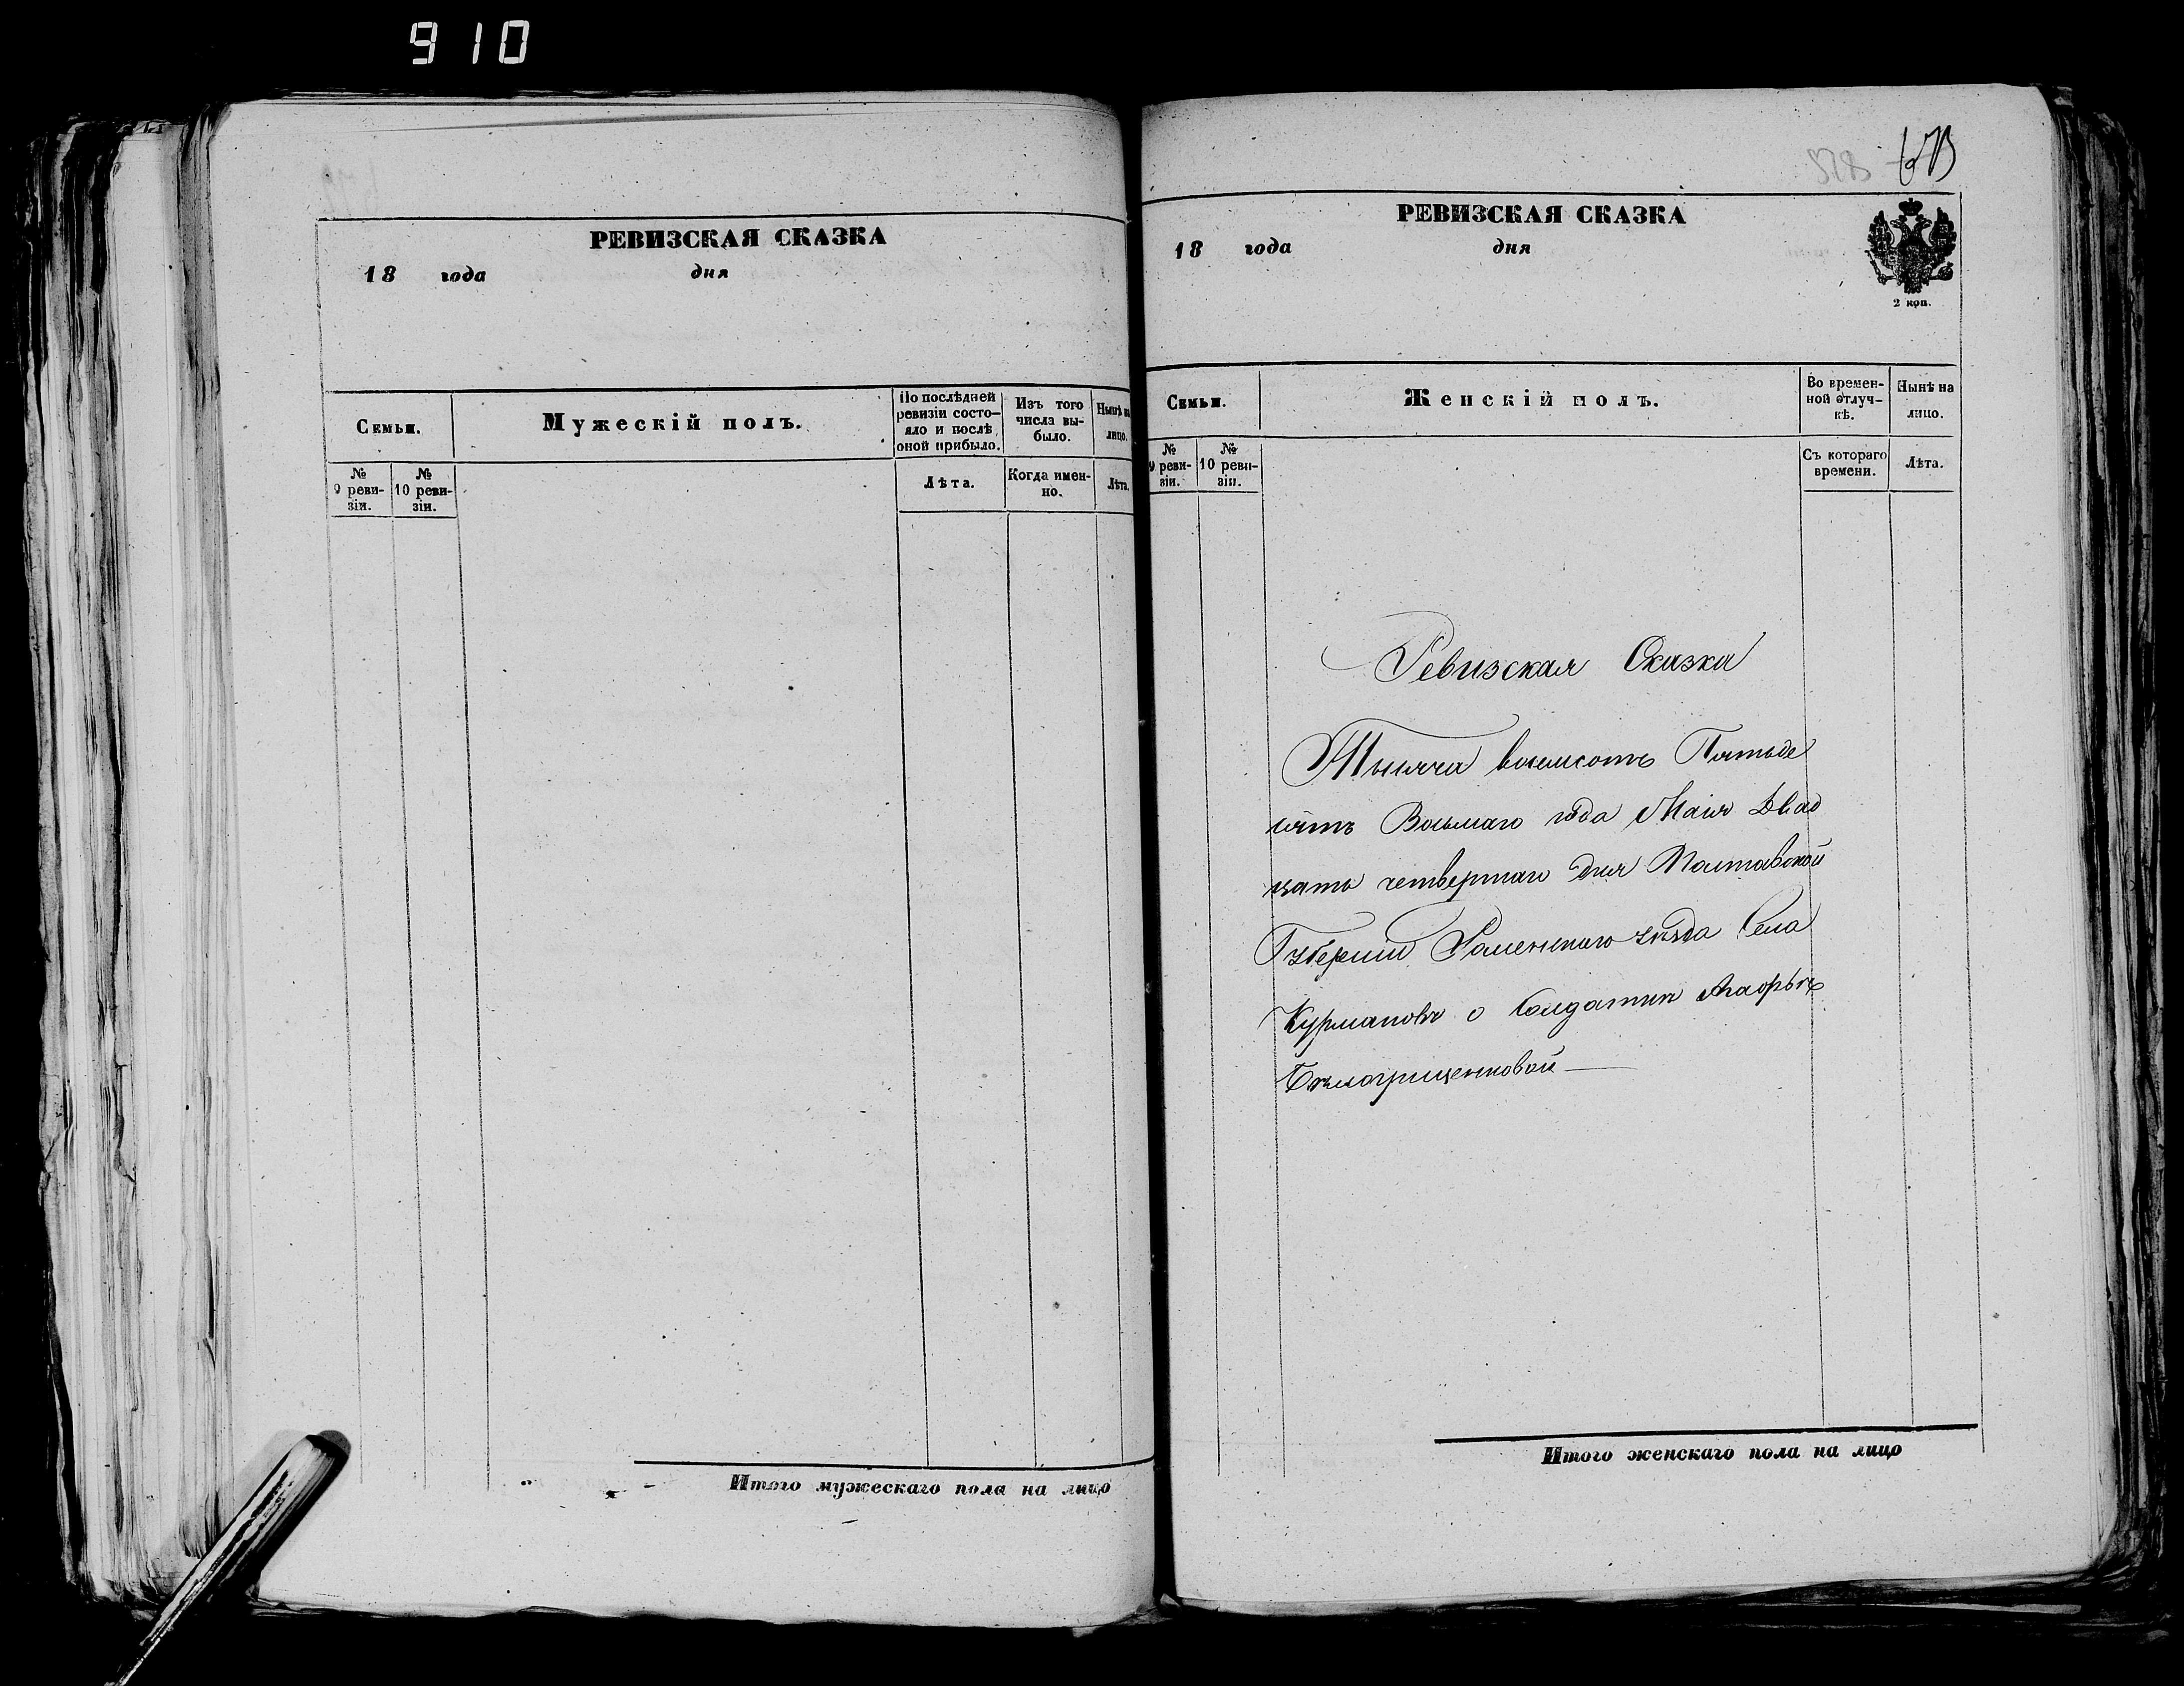 910
РЕВИЗСКАЯ СКАЗКА
18 года дня
Семьи.
Мужескій полъ.
По послѣдней ревизіи состояло и послѣ оной прибыло.
Изъ того числа выбыло.
Нынѣ на лицо.
№ 9 ревизіи.
№ 10 ревизіи.
Лѣта.
Когда именно.
Лѣта.
Итого мужескаго пола на лицо
РЕВИЗСКАЯ СКАЗКА
18 года дня
2 коп.
Семьи.
Женскій полъ.
Во временной отлучкѣ.
Нынѣ на лицо.
№ 9 ревизіи.
№ 10 ревизіи.
Съ котораго времени.
Лѣта.
Ревизская Сказка
Тысяча восемсотъ Пятьде
сятъ Восьмаго года Маія двад
цать четвертаго дня Полтавской
Губерніи Роменскаго уѣзда Села
Курмановъ о Солдаткѣ
Бѣлогрищенковой
Итого женскаго пола на лицо